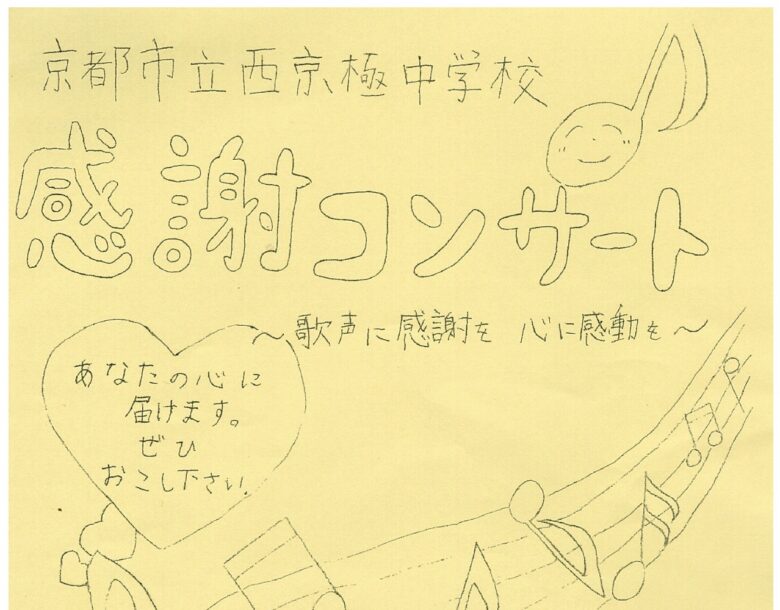 京都市立西京極中学校
感謝コンサート
～歌声に感謝を 心に感動を～
あなたの心に
届けます。
ぜひ
おこし下さい。